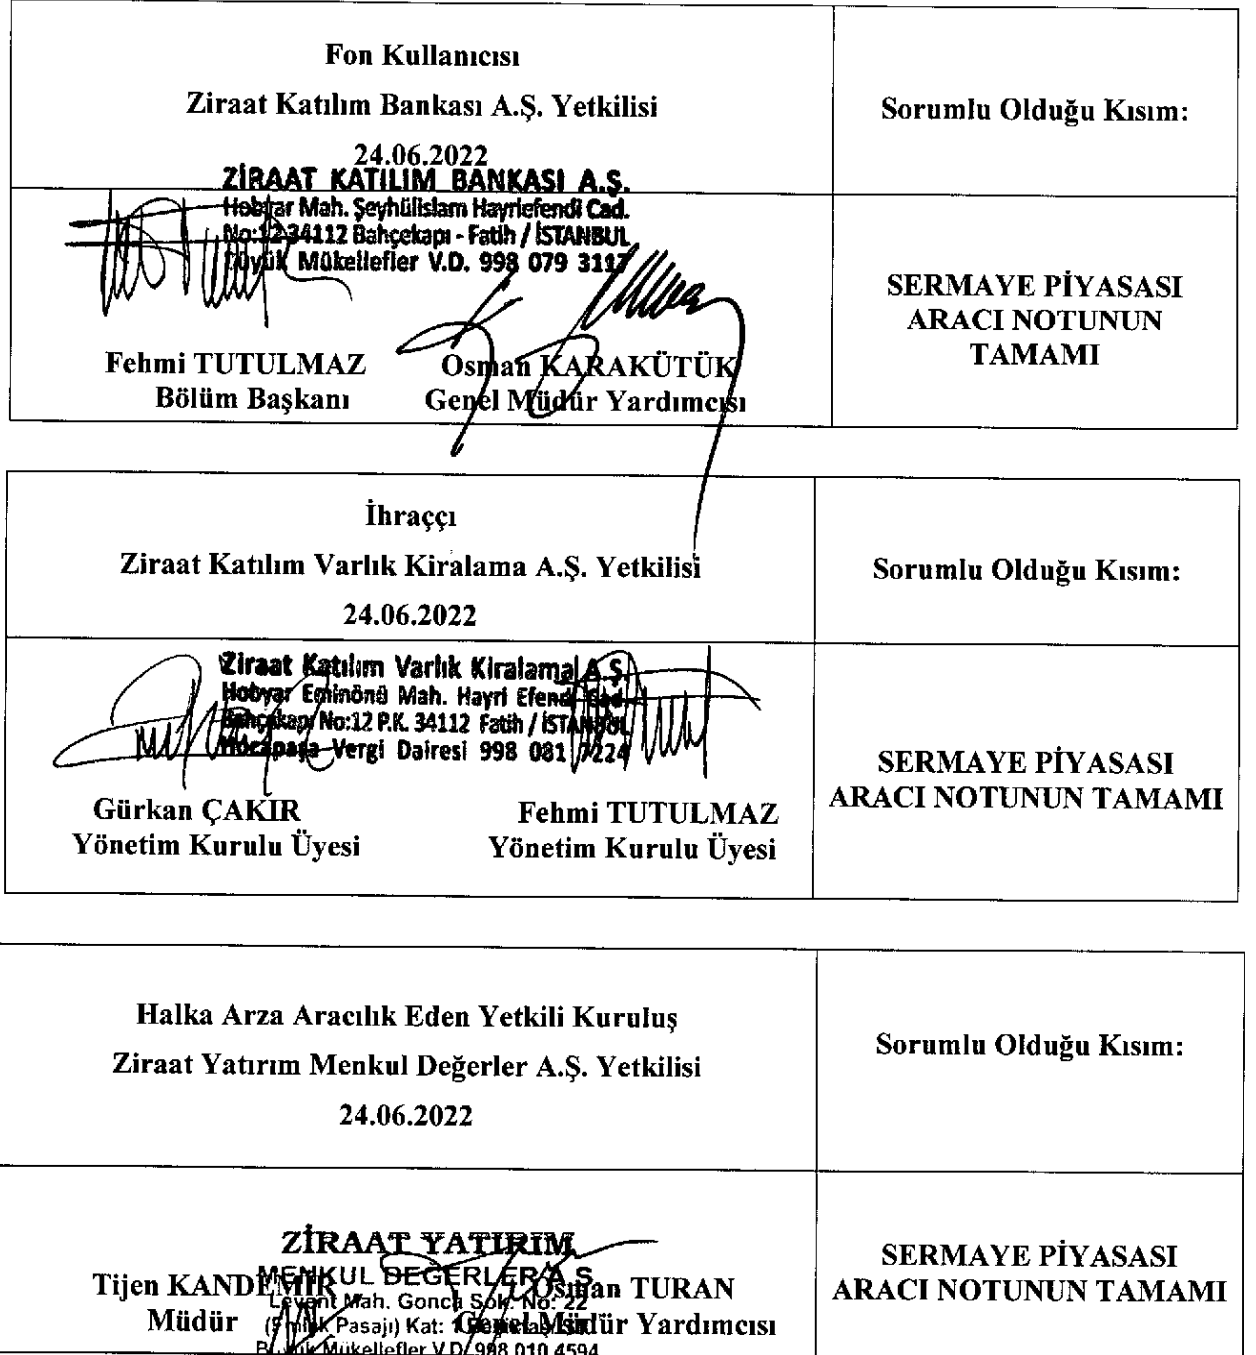 Fon Kullanıcısı
Ziraat Katılım Bankası A.Ş. Yetkilisi
24.06.2022
Sorumlu Olduğu Kısım:
ZİRAAT KATILIM BANKASI A.Ş.
Hobyar Mah. Şeyhülislam Hayriefendi Cad.
No:12 34112 Bahçekapı - Fatih / İSTANBUL
Büyük Mükellefler V.D. 998 079 3117
Fehmi TUTULMAZ
Bölüm Başkanı
Osman KARAKÜTÜK
Genel Müdür Yardımcısı
SERMAYE PİYASASI
ARACI NOTUNUN
TAMAMI
İhraççı
Ziraat Katılım Varlık Kiralama A.Ş. Yetkilisi
24.06.2022
Sorumlu Olduğu Kısım:
Ziraat Katılım Varlık Kiralama A.Ş.
Hobyar Eminönü Mah. Hayri Efendi Cad.
Bahçekapı No:12 P.K. 34112 Fatih / İSTANBUL
Hocapaşa Vergi Dairesi 998 081 7224
Gürkan ÇAKIR
Yönetim Kurulu Üyesi
Fehmi TUTULMAZ
Yönetim Kurulu Üyesi
SERMAYE PİYASASI
ARACI NOTUNUN TAMAMI
Halka Arza Aracılık Eden Yetkili Kuruluş
Ziraat Yatırım Menkul Değerler A.Ş. Yetkilisi
24.06.2022
Sorumlu Olduğu Kısım:
ZİRAAT YATIRIM
MENKUL DEĞERLER A.Ş.
Levent Mah. Gonca Sok. No: 22
Pasajı) Kat: 1
Mükellefler V.D. 998 010 4594
Tijen KANDEMİR
Müdür
Osman TURAN
Genel Müdür Yardımcısı
SERMAYE PİYASASI
ARACI NOTUNUN TAMAMI